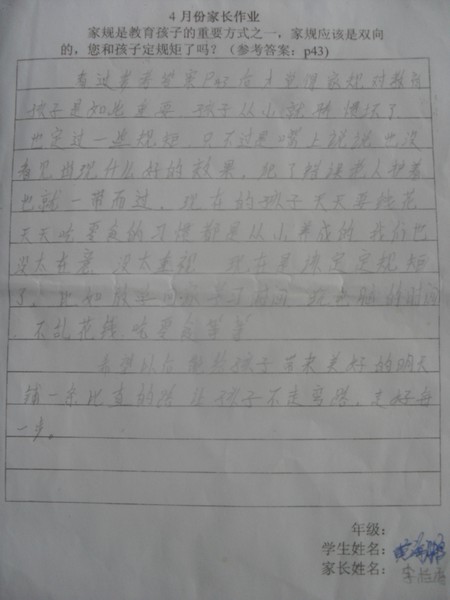 4月份家长作业
家规是教育孩子的重要方式之一，家规应该是双向
的，您和孩子定规矩了吗？（参考答案：p43）
看过参考答案P43后才觉得家规对教育
孩子是如此重要，孩子从小就 惯坏了
也定过一些规矩，只不过是嘴上说说也没
看见出现什么好的效果，犯了错误老人护着
也就一带而过，现在的孩子天天要钱花
天天吃零食的习惯都是从小养成的 我们也
没太在意 没太重视 现在是该定定规矩
了，比如放学回家学习时间，玩电脑的时间
不乱花钱 吃零食等等
希望以后能给孩子带来美好的明天
铺一条笔直的路 让孩子不走弯路，走好每
一步。
年级：
学生姓名：
家长姓名：